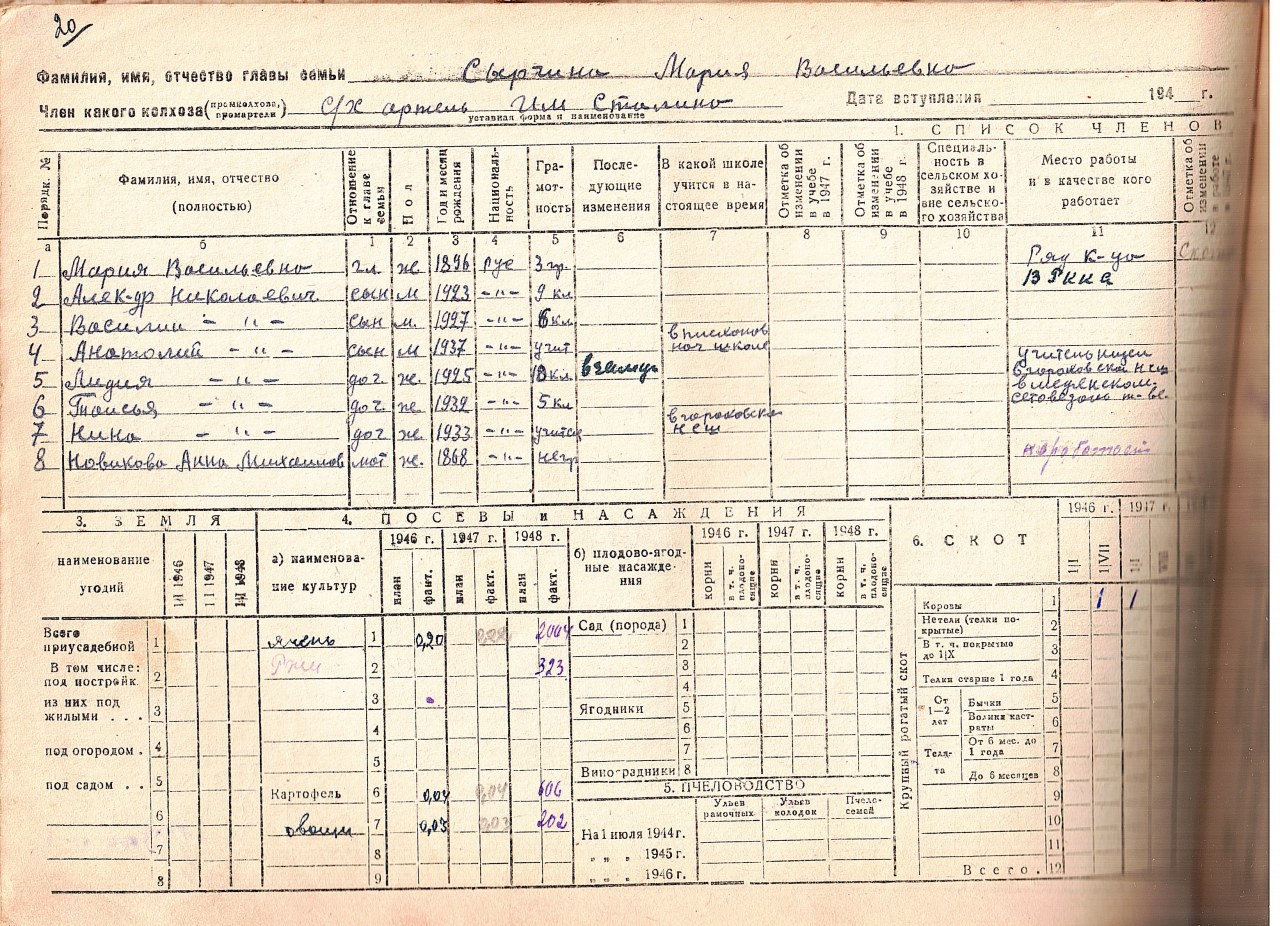 20
Фамилия, имя, отчество главы семьи Сырчина Мария Васильевна
Член какого колхоза (промколхоза, промартели) с/х артель Им Сталина Дата вступления 194 г.
уставная форма и наименование
1. СПИСОК ЧЛЕНОВ
Порядк. № Фамилия, имя, отчество (полностью) Отношение к главе семьи Пол Год и месяц рождения Националь-ность Гра-мот-ность После-дующие изменения В какой школе учится в на-стоящее время Отметка об изменении в учебе в 1947 г. Отметка об изменении в учебе в 1948 г. Специаль-ность в сельском хо-зяйстве и вне сельско-го хозяйства Место работы и в качестве кого работает Отметка об изменении
а б 1 2 3 4 5 6 7 8 9 10 11 12
1 Мария Васильевна гл. ж. 1896 рус 3 гр. Ряд к-за
2 Алек-др Николаевич. сын м 1923 -"- 9 кл В РККА
3 Василий -"- сын м. 1927 -"- 6 кл
4 Анатолий -"- сын м 1937 -"- учит в нач школе
5 Лидия -"- доч. ж. 1925 -"- 10 кл учительницей
6 Таисья -"- доч. ж. 1932 -"- 5 кл
7 Нина -"- доч. ж. 1933 -"- учится в гороховска нсш
8 Новикова Анна Михайлов мат ж. 1868 -"- негр не работает
3. ЗЕМЛЯ
наименование угодий
1|I 1946 1|I 1947 1|I 1948
Всего приусадебной 1
В том числе: под постройк. 2
из них под жилыми . . . 3
под огородом . 4
под садом . . 5
6
7
8
4. ПОСЕВЫ и НАСАЖДЕНИЯ
а) наименова-ние культур
1946 г. 1947 г. 1948 г.
план факт. план факт. план факт.
ячень 1 0,20 2004
Ржи 2 323
3
4
5
Картофель 6 0,04 0,04 606
овощи 7 0,03 0,03 202
8
9
б) плодово-ягод-ные насажде-ния
1946 г. 1947 г. 1948 г.
корни в т. ч. плодоно-сящие корни в т. ч. плодоно-сящие корни в т. ч. плодоно-сящие
Сад (порода) 1
2
3
4
Ягодники 5
6
7
Виноградники 8
5. ПЧЕЛОВОДСТВО
Ульев рамочных Ульев колодок Пчело-семей
На 1 июля 1944 г.
" " " 1945 г.
" " " 1946 г.
6. СКОТ
1946 г. 1947 г.
1|I 1|VII 1|I
Крупный рогатый скот
Коровы 1 1 1
Нетели (телки по-крытые) 2
В т. ч. покрытые до 1|X 3
Телки старше 1 года 4
От 1—2 лет Бычки 5
Волики каст-раты 6
Теля-та От 6 мес. до 1 года 7
До 6 месяцев 8
9
10
11
Всего. 12